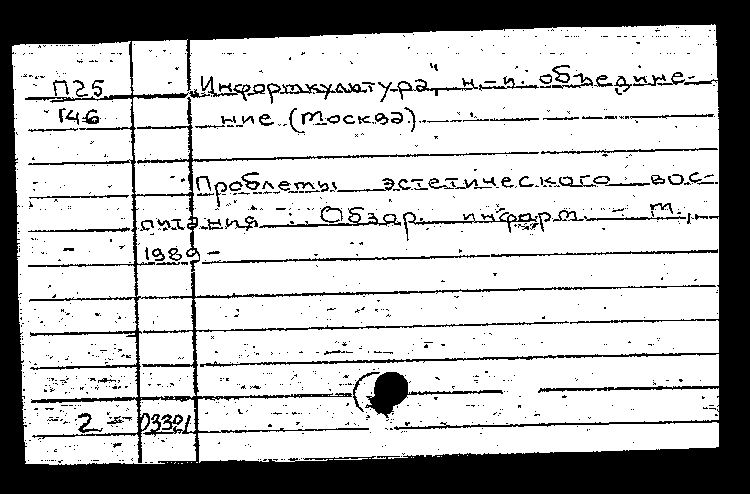 П25 „Информкультура", н.-и. объедине-
Г46 ние (Москва)
Проблемы эстетического вос-
питания : Обзор. информ. - М.,
1989 -
2 - 03321